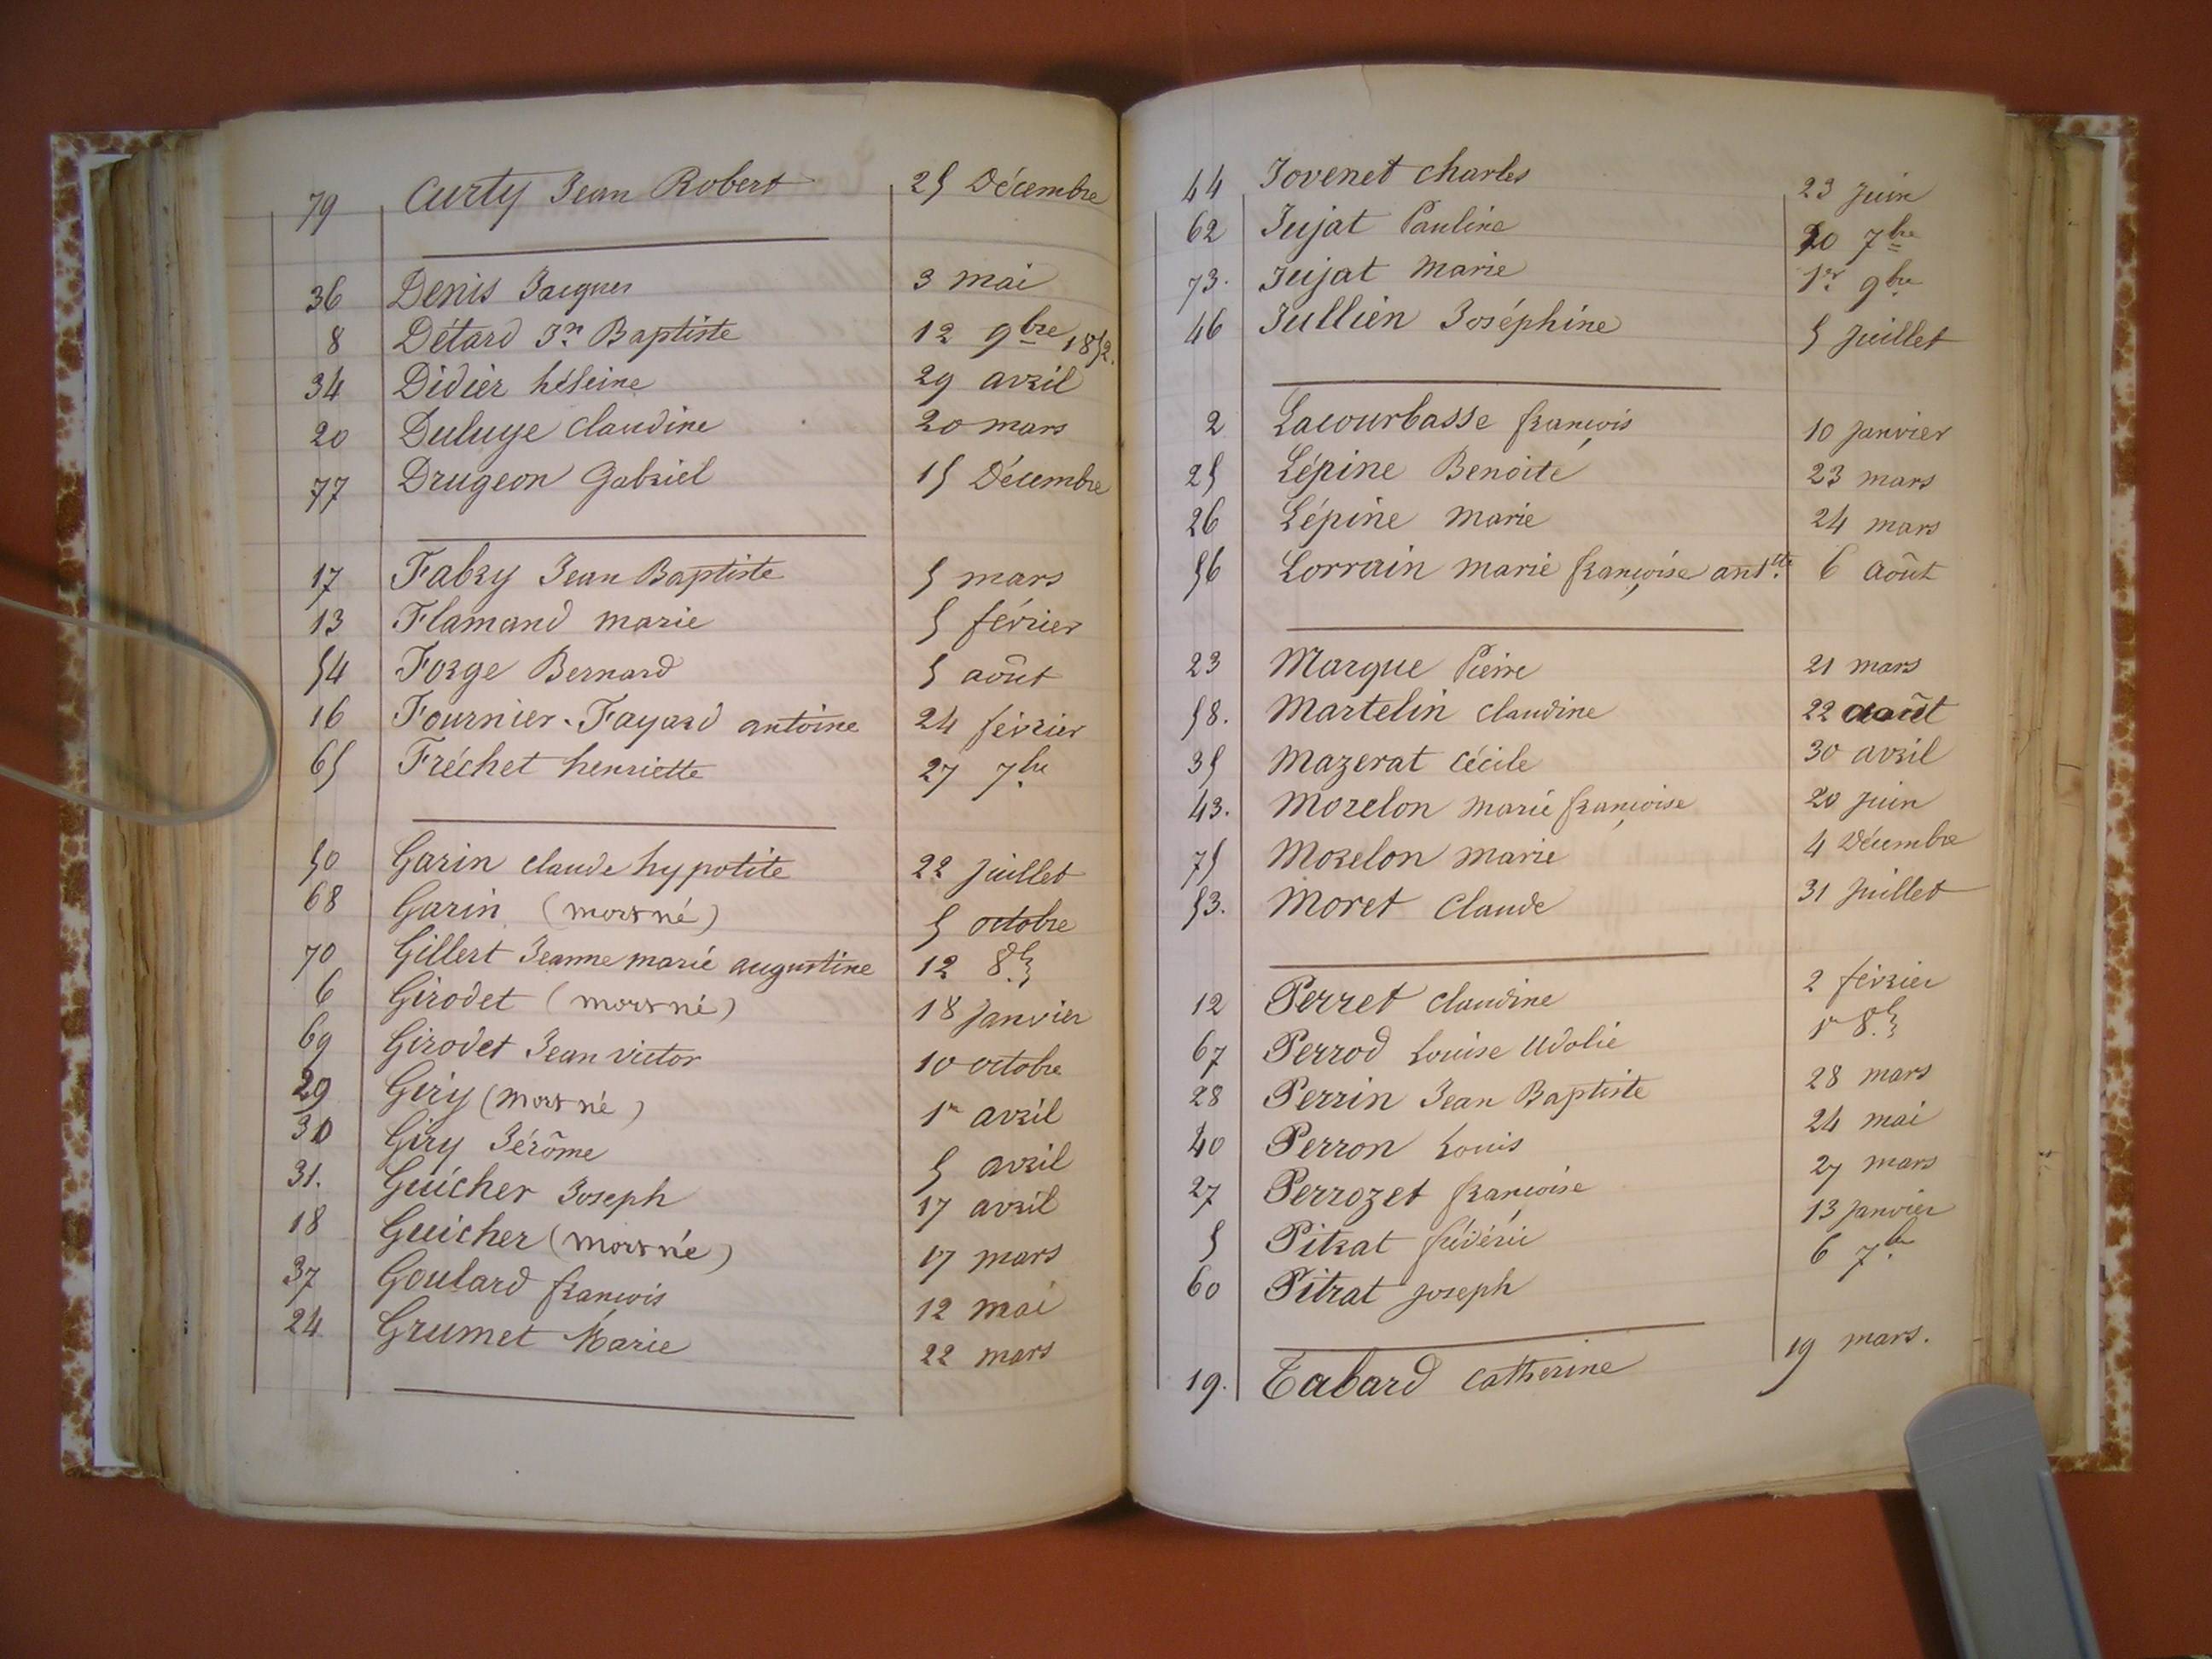 79 Curty Jean Robert 25 Décembre
36 Denis Jacques 3 mai
8 Détard Jn Baptiste 12 9bre 1852.
34 Didier héleine 29 avril
20 Duluye Claudine 20 mars
77 Drugeon Gabriel 15 Décembre
17 Fabry Jean Baptiste 5 mars
13 Flamand marie 5 février
54 Forge Bernard 5 août
16 Fournier-Fayard antoine 24 février
65 Fréchet henriette 27 7bre
50 Garin claude hypolite 22 juillet
68 Garin (mort né) 5 octobre
70 Gillert Jeanne marie augustine 12 8bre
6 Girodet (mort né) 18 Janvier
69 Girodet Jean victor 10 octobre
29 Giry (mort né) 1er avril
30 Giry Jérôme 5 avril
31. Guicher Joseph 17 avril
18 Guicher (mort né) 17 mars
37 Goulard françois 12 mai
24 Grumet Marie 22 mars
44 Jovenet Charles 23 juin
62 Jujat Pauline 20 7bre
73. Jujat Marie 1er 9bre
46 Jullien Joséphine 5 juillet
2 Lacourbasse françois 10 janvier
25 Lépine Benoite 23 mars
26 Lépine marie 24 mars
56 Lorrain marie françoise antte 6 août
23 Marque Pierre 21 mars
58. Martelin claudine 22 août
35 Mazerat Cécile 30 avril
43. Morelon marie françoise 20 juin
75 Morelon marie 4 Décembre
53. Moret Claude 31 juillet
12 Perret claudine 2 février
67 Perrod Louise Udolie 1er 8bre
28 Perrin Jean Baptiste 28 mars
40 Perron Louis 24 mai
27 Perrozet françoise 27 mars
5 Pitrat frédéric 13 janvier
60 Pitrat joseph 6 7bre
19. Tabard catherine 19 mars.